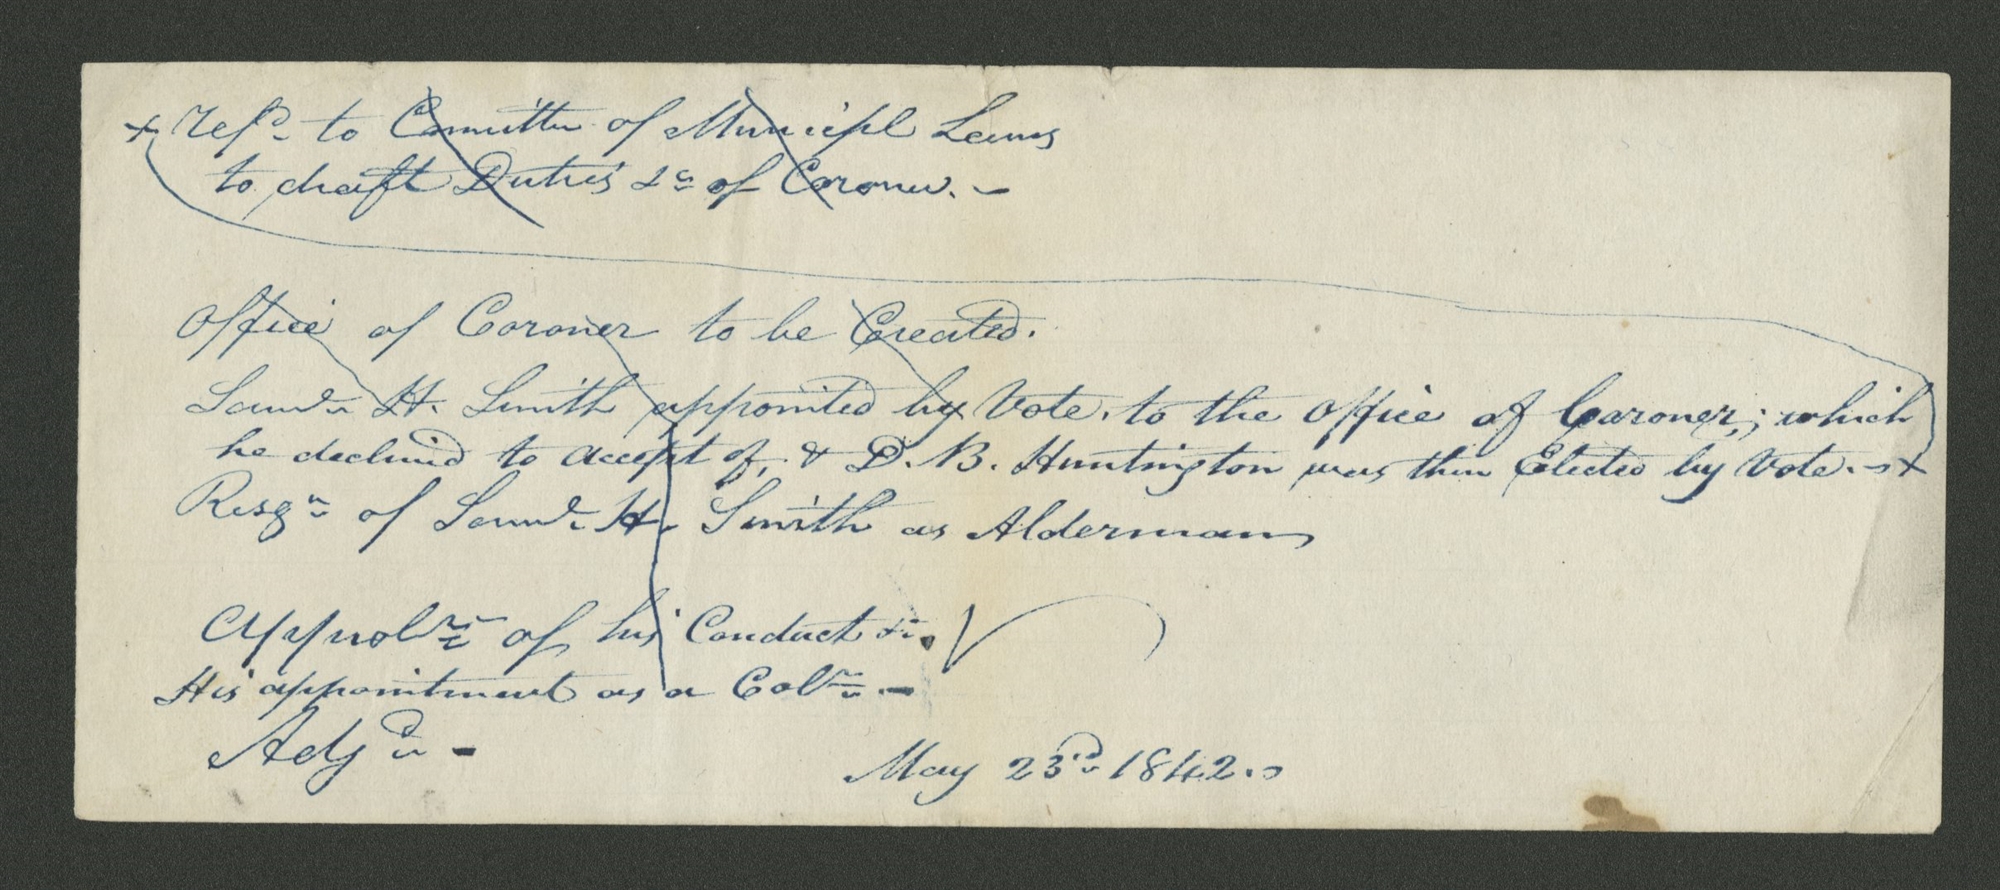 + Refd. to Committee of Municipl Laws
to draft Duties &c of Coroner. -
Office of Coroner to be Created.
Saml. H. Smith appointed by Vote, to the office of Coroner; which
he declined to accept of, & D. B. Huntington was then Elected by Vote. +
Resgn. of Saml. H. Smith as Alderman
of his Conduct &c.
His appointment as a Coln. -
Adjd. -
May 23rd. 1842.